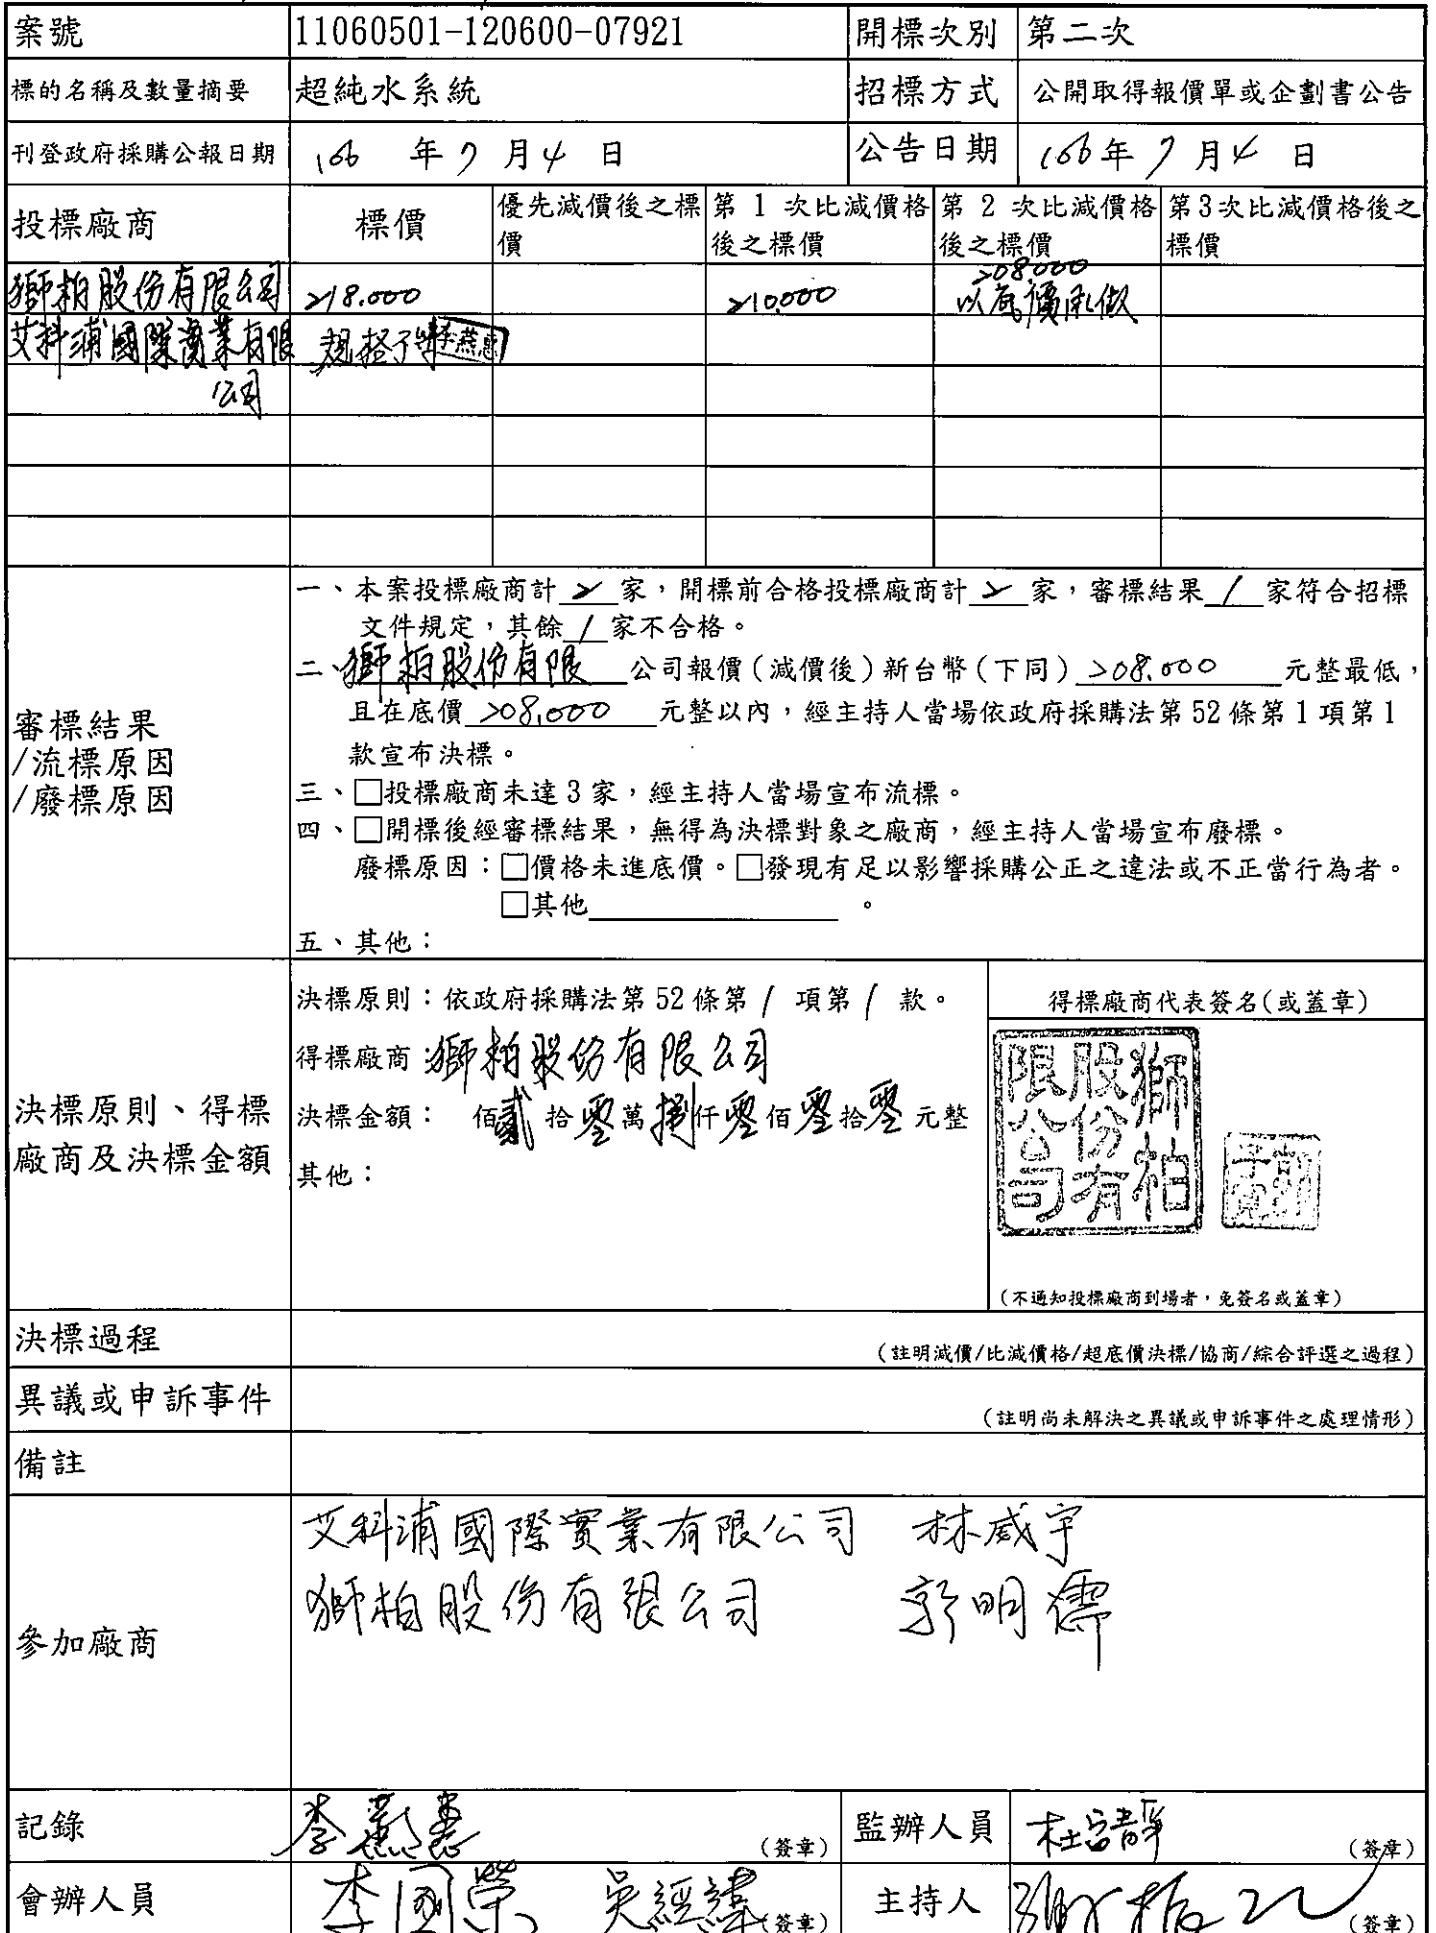 案號 11060501-120600-07921 開標次別 第二次
標的名稱及數量摘要 超純水系統 招標方式 公開取得報價單或企劃書公告
刊登政府採購公報日期 106 年 7 月 4 日 公告日期 106 年 7 月 4 日
投標廠商 標價 優先減價後之標價 第 1 次比減價格後之標價 第 2 次比減價格後之標價 第3次比減價格後之標價
獅柏股份有限公司 218,000 210,000 208,000
以底價承做
艾科浦國際實業有限 規格不 李燕惠
公司
審標結果
/流標原因
/廢標原因
一、本案投標廠商計 2 家,開標前合格投標廠商計 2 家,審標結果 1 家符合招標
文件規定,其餘 1 家不合格。
二、獅柏股份有限 公司報價(減價後)新台幣(下同) 208,000 元整最低,
且在底價 208,000 元整以內,經主持人當場依政府採購法第 52 條第 1 項第 1
款宣布決標。
三、□投標廠商未達 3 家,經主持人當場宣布流標。
四、□開標後經審標結果,無得為決標對象之廠商,經主持人當場宣布廢標。
廢標原因:□價格未進底價。□發現有足以影響採購公正之違法或不正當行為者。
□其他 。
五、其他:
決標原則、得標
廠商及決標金額
決標原則:依政府採購法第 52 條第 1 項第 1 款。
得標廠商:獅柏股份有限公司
決標金額: 佰貳拾零萬捌仟零佰零拾零元整
其他:
得標廠商代表簽名(或蓋章)
獅柏
股份有
限公司
(不通知投標廠商到場者,免簽名或蓋章)
決標過程 (註明減價/比減價格/超底價決標/協商/綜合評選之過程)
異議或申訴事件 (註明尚未解決之異議或申訴事件之處理情形)
備註
參加廠商
艾科浦國際實業有限公司 林威宇
獅柏股份有限公司 郭明儒
記錄 李燕惠 (簽章) 監辦人員 (簽章)
會辦人員 李國榮 吳經緯 (簽章) 主持人 (簽章)